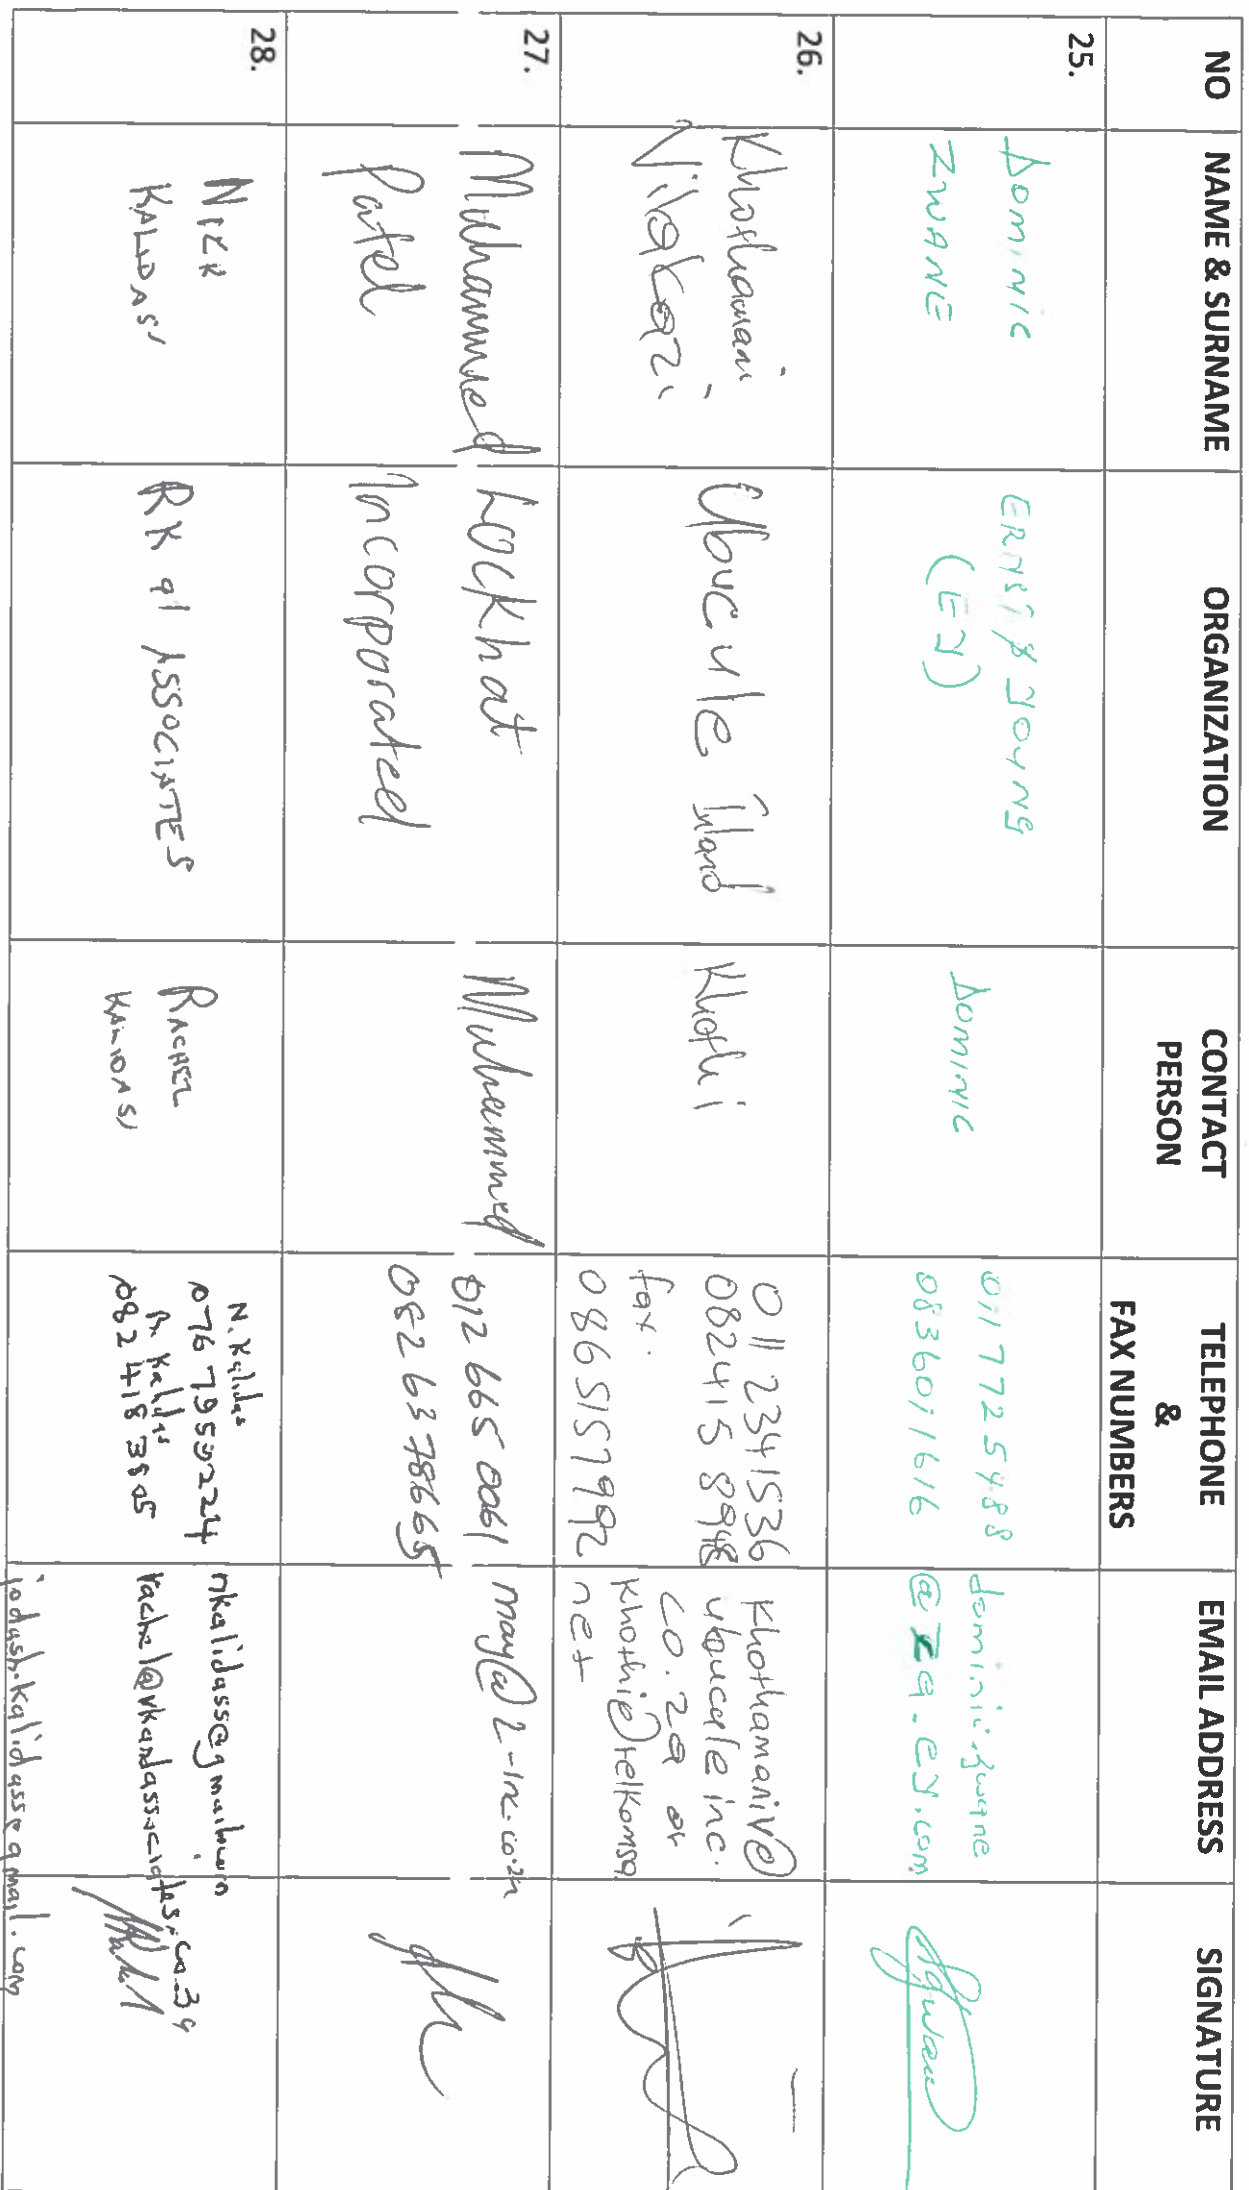 NO
NAME & SURNAME
ORGANIZATION
CONTACT
PERSON
TELEPHONE
&
FAX NUMBERS
EMAIL ADDRESS
SIGNATURE
25.
DOMINIC
ZWANE
ERNST & YOUNG
(EY)
DOMINIC
011 772 5488
0836011616
dominic.zwane
@za.ey.com
26.
Khothamani
Vilakazi
Ubucule Inland
Khothi
011 2341536
082415 8948
fax.
0865157992
Khothamaniv@
ubucule inc.
co.za or
Khothi@telkomsa
net
27.
Muhammed
Patel
Lockhat
Incorporated
Muhammed
012 665 0061
082 63 78665
may@L-inc.co.za
28.
NICK
KALIDASS
RK & ASSOCIATES
RACHEL
KALIDASS
N. Kalidas
076 795 5224
R. Kalidas
082 418 3805
nkalidass@gmail.com
rachel@rkandassociates.co.za
jodash.kalidass@gmail.com